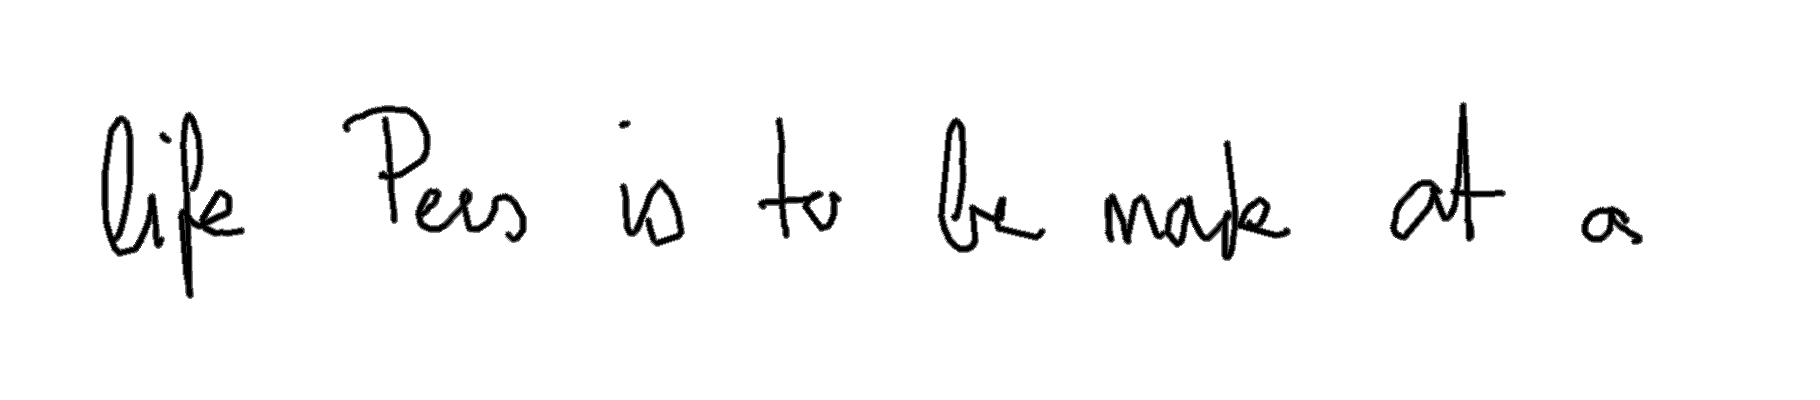 life Peers is to be made at a